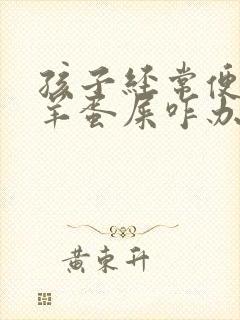 孩子经常便
羊蛋屎咋办
黄东升